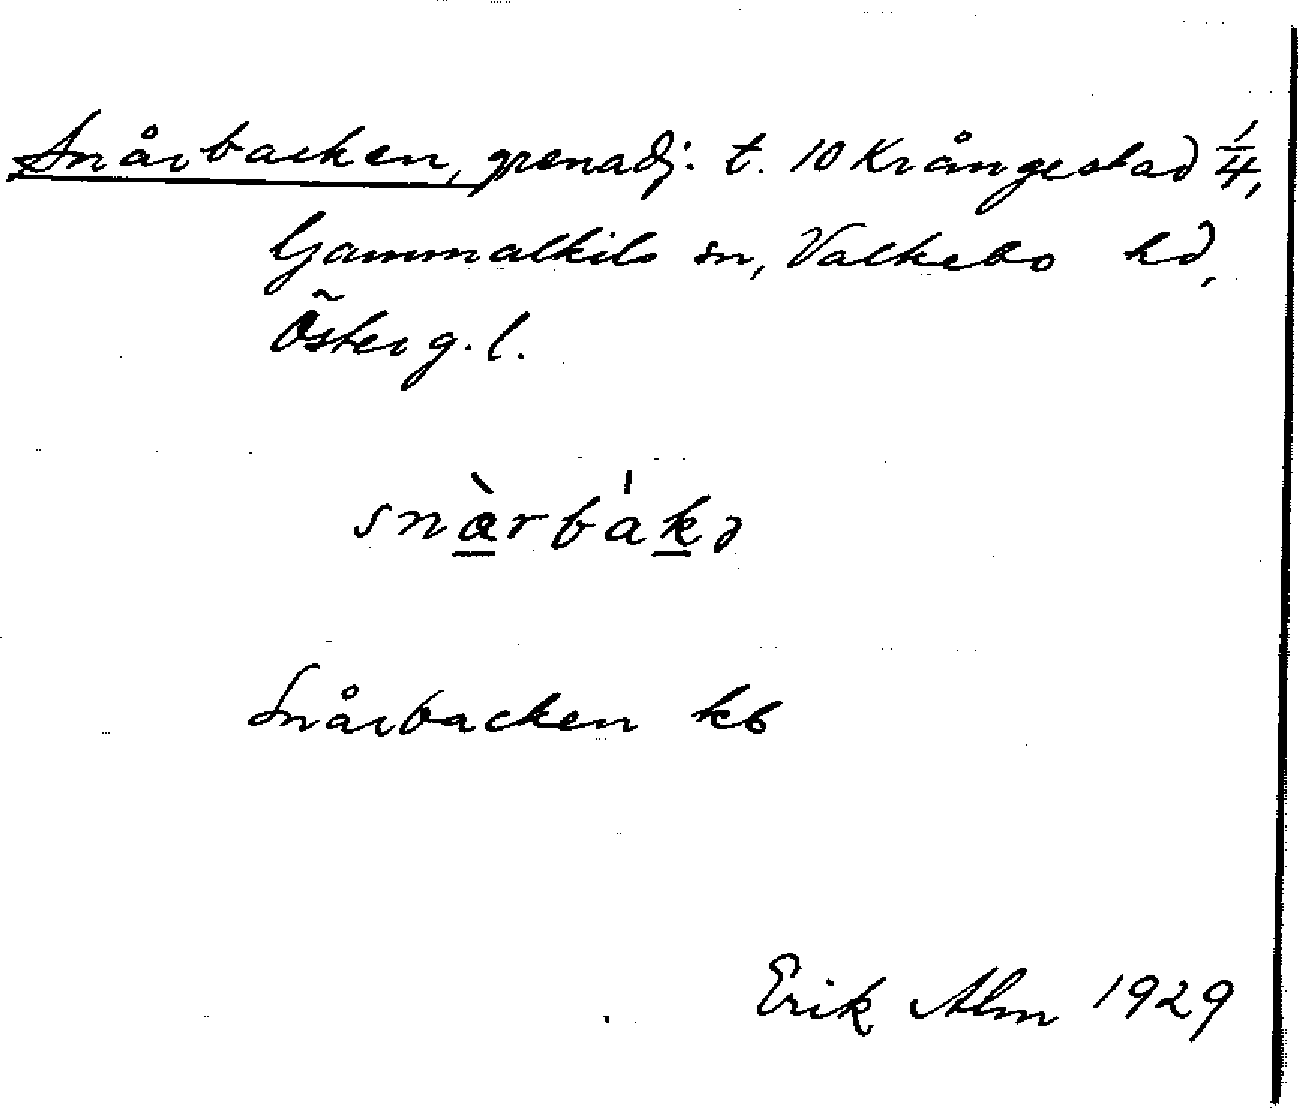 Snårbacken, grenadj: t. 10 Krångestad 1/4,
Gammalkils sn, Valkebo hd,
Österg. l.
snàrbákə
Snårbacken kb
Erik Alm 1929